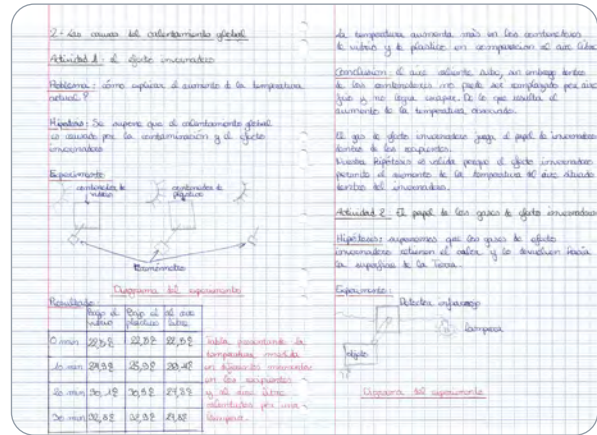 2- Las causas del calentamiento global
Actividad 1: el efecto invernadero
Problema: cómo explicar el aumento de la temperatura
actual?
Hipótesis: Se supone que el calentamiento global
es causado por la contaminación y el efecto
invernadero
Experimento:
contenedor de
vidrio
contenedor de
plástico
termómetro
Diagrama del experimento
Resultados:
Bajo el
vidrio
Bajo el
plástico
al aire
libre
0 min
10 min
20 min
30 min
Tabla presentando la
temperatura medida
en diferentes momentos
en los recipientes
y al aire libre
calentados por una
lámpara.
La temperatura aumenta más en los contenedores
de vidrio y de plástico en comparación al aire libre
Conclusión: el aire caliente sube, sin embargo dentro
de los contenedores no puede ser remplazado por aire
frío y no logra escapar. De lo que resulta el
aumento de la temperatura observado.
El gas de efecto invernadero juega el papel de invernadero
dentro de los recipientes.
Nuestra hipótesis es valida porque el efecto invernadero
permite el aumento de la temperatura del aire situado
dentro del invernadero.
Actividad 2: El papel de los gases de efecto invernadero
Hipótesis: suponemos que los gases de efecto
invernadero retienen el calor y lo devuelven hacia
la superficie de la Tierra.
Experimento:
Detector infrarrojo
lámpara
objeto
Diagrama del experimento